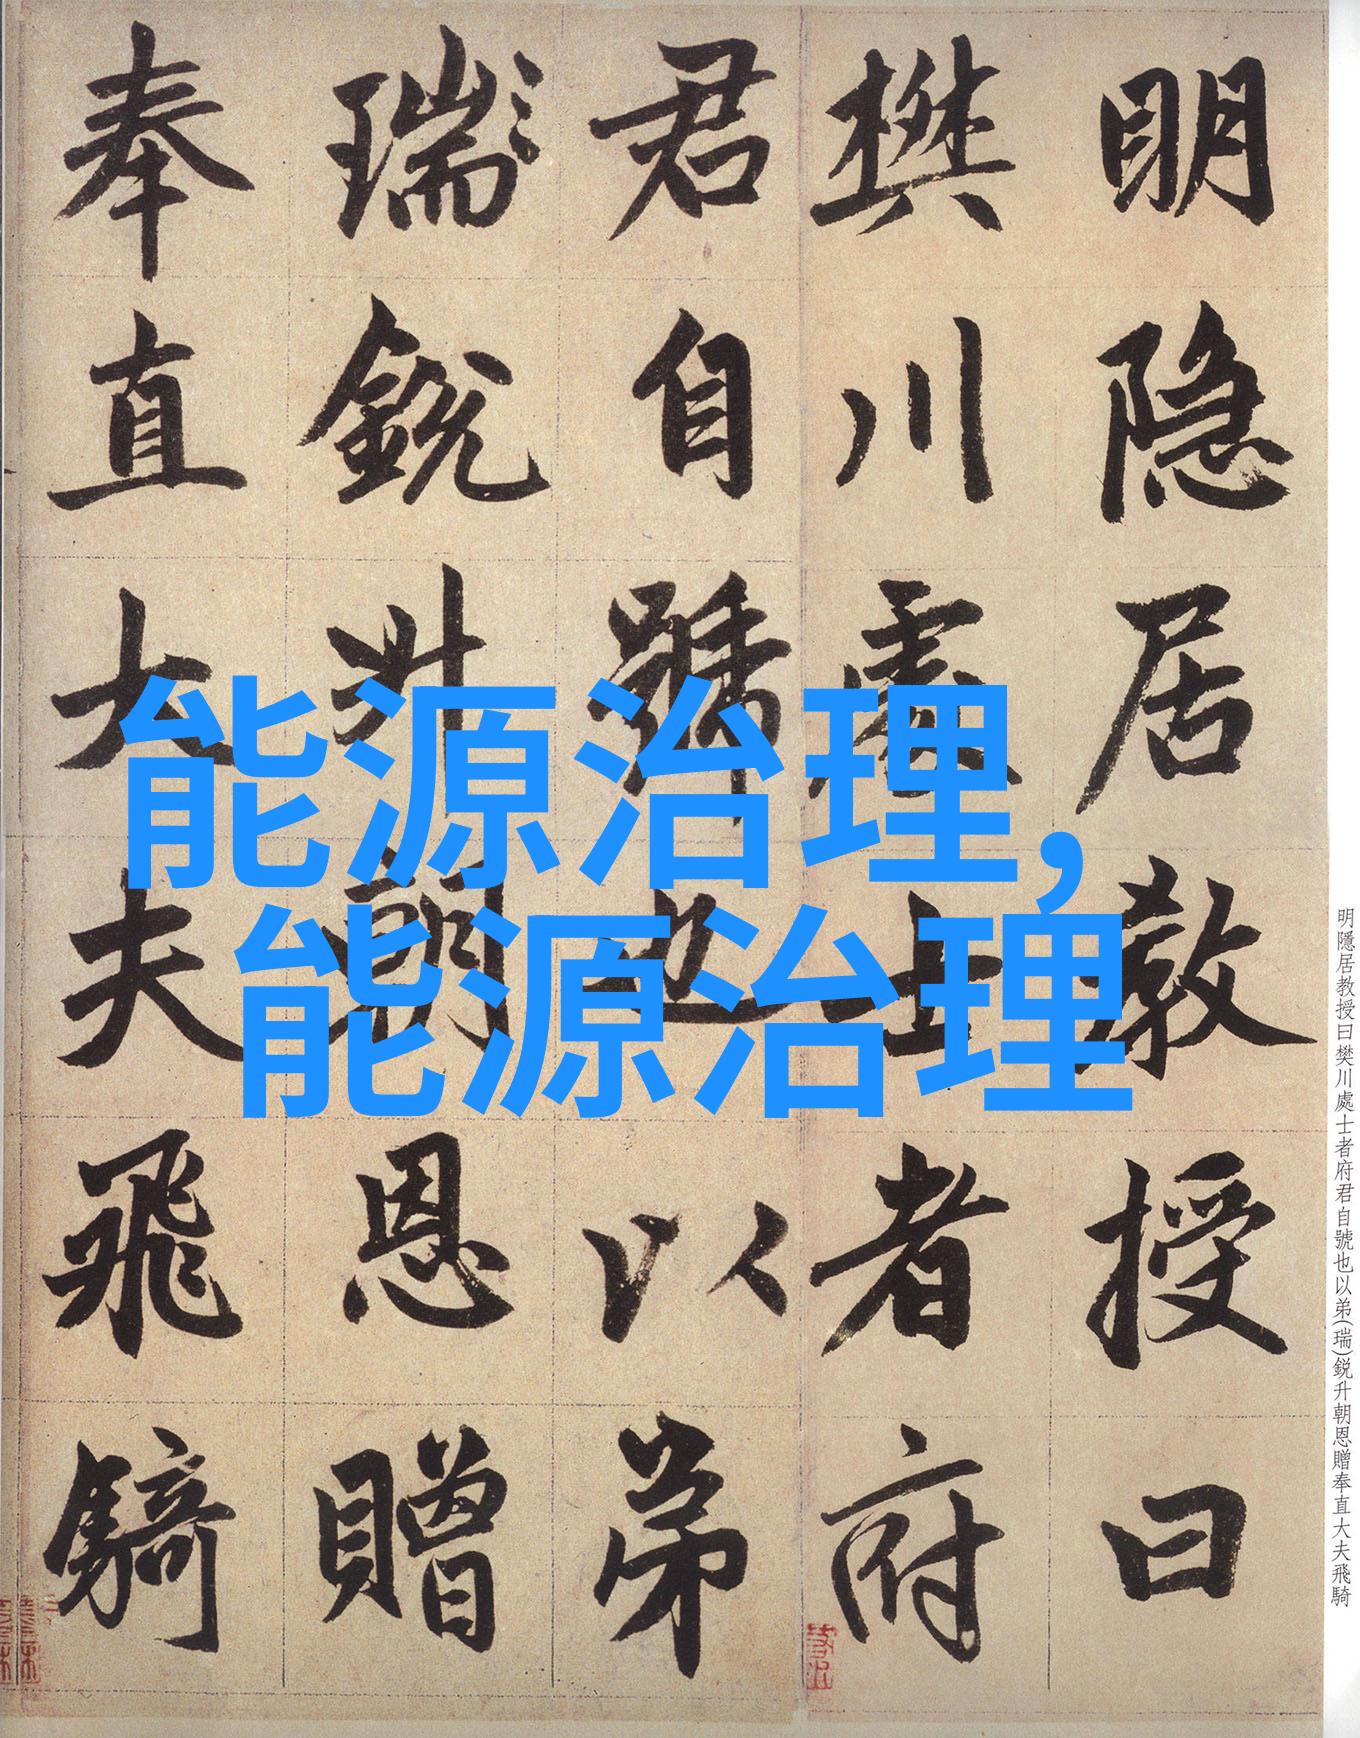 明隐居教授曰
樊川處士者府
君自號也以弟
瑞銳升朝恩贈
奉直大夫飛騎
能源治理,
能源治理
明隱居教授曰樊川處士者府君自號也以弟(瑞)鋭升朝恩贈奉直大夫飛騎